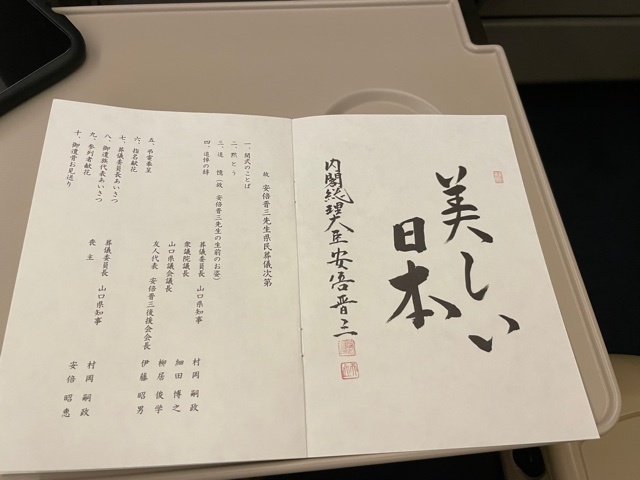 美しい
日本
内閣総理大臣安倍晋三
故 安倍晋三先生県民葬儀次第
一、開式のことば
二、黙とう
三、追憶(故 安倍晋三先生の生前のお姿)
四、追悼の辞 葬儀委員長 山口県知事 村岡嗣政
衆議院議長 細田博之
山口県議会議長 柳居俊学
友人代表 安倍晋三後援会会長 伊藤昭男
五、弔電奉呈
六、指名献花
七、葬儀委員長あいさつ 葬儀委員長 山口県知事 村岡嗣政
八、御遺族代表あいさつ 喪主 安倍昭恵
九、参列者献花
十、御遺骨お見送り